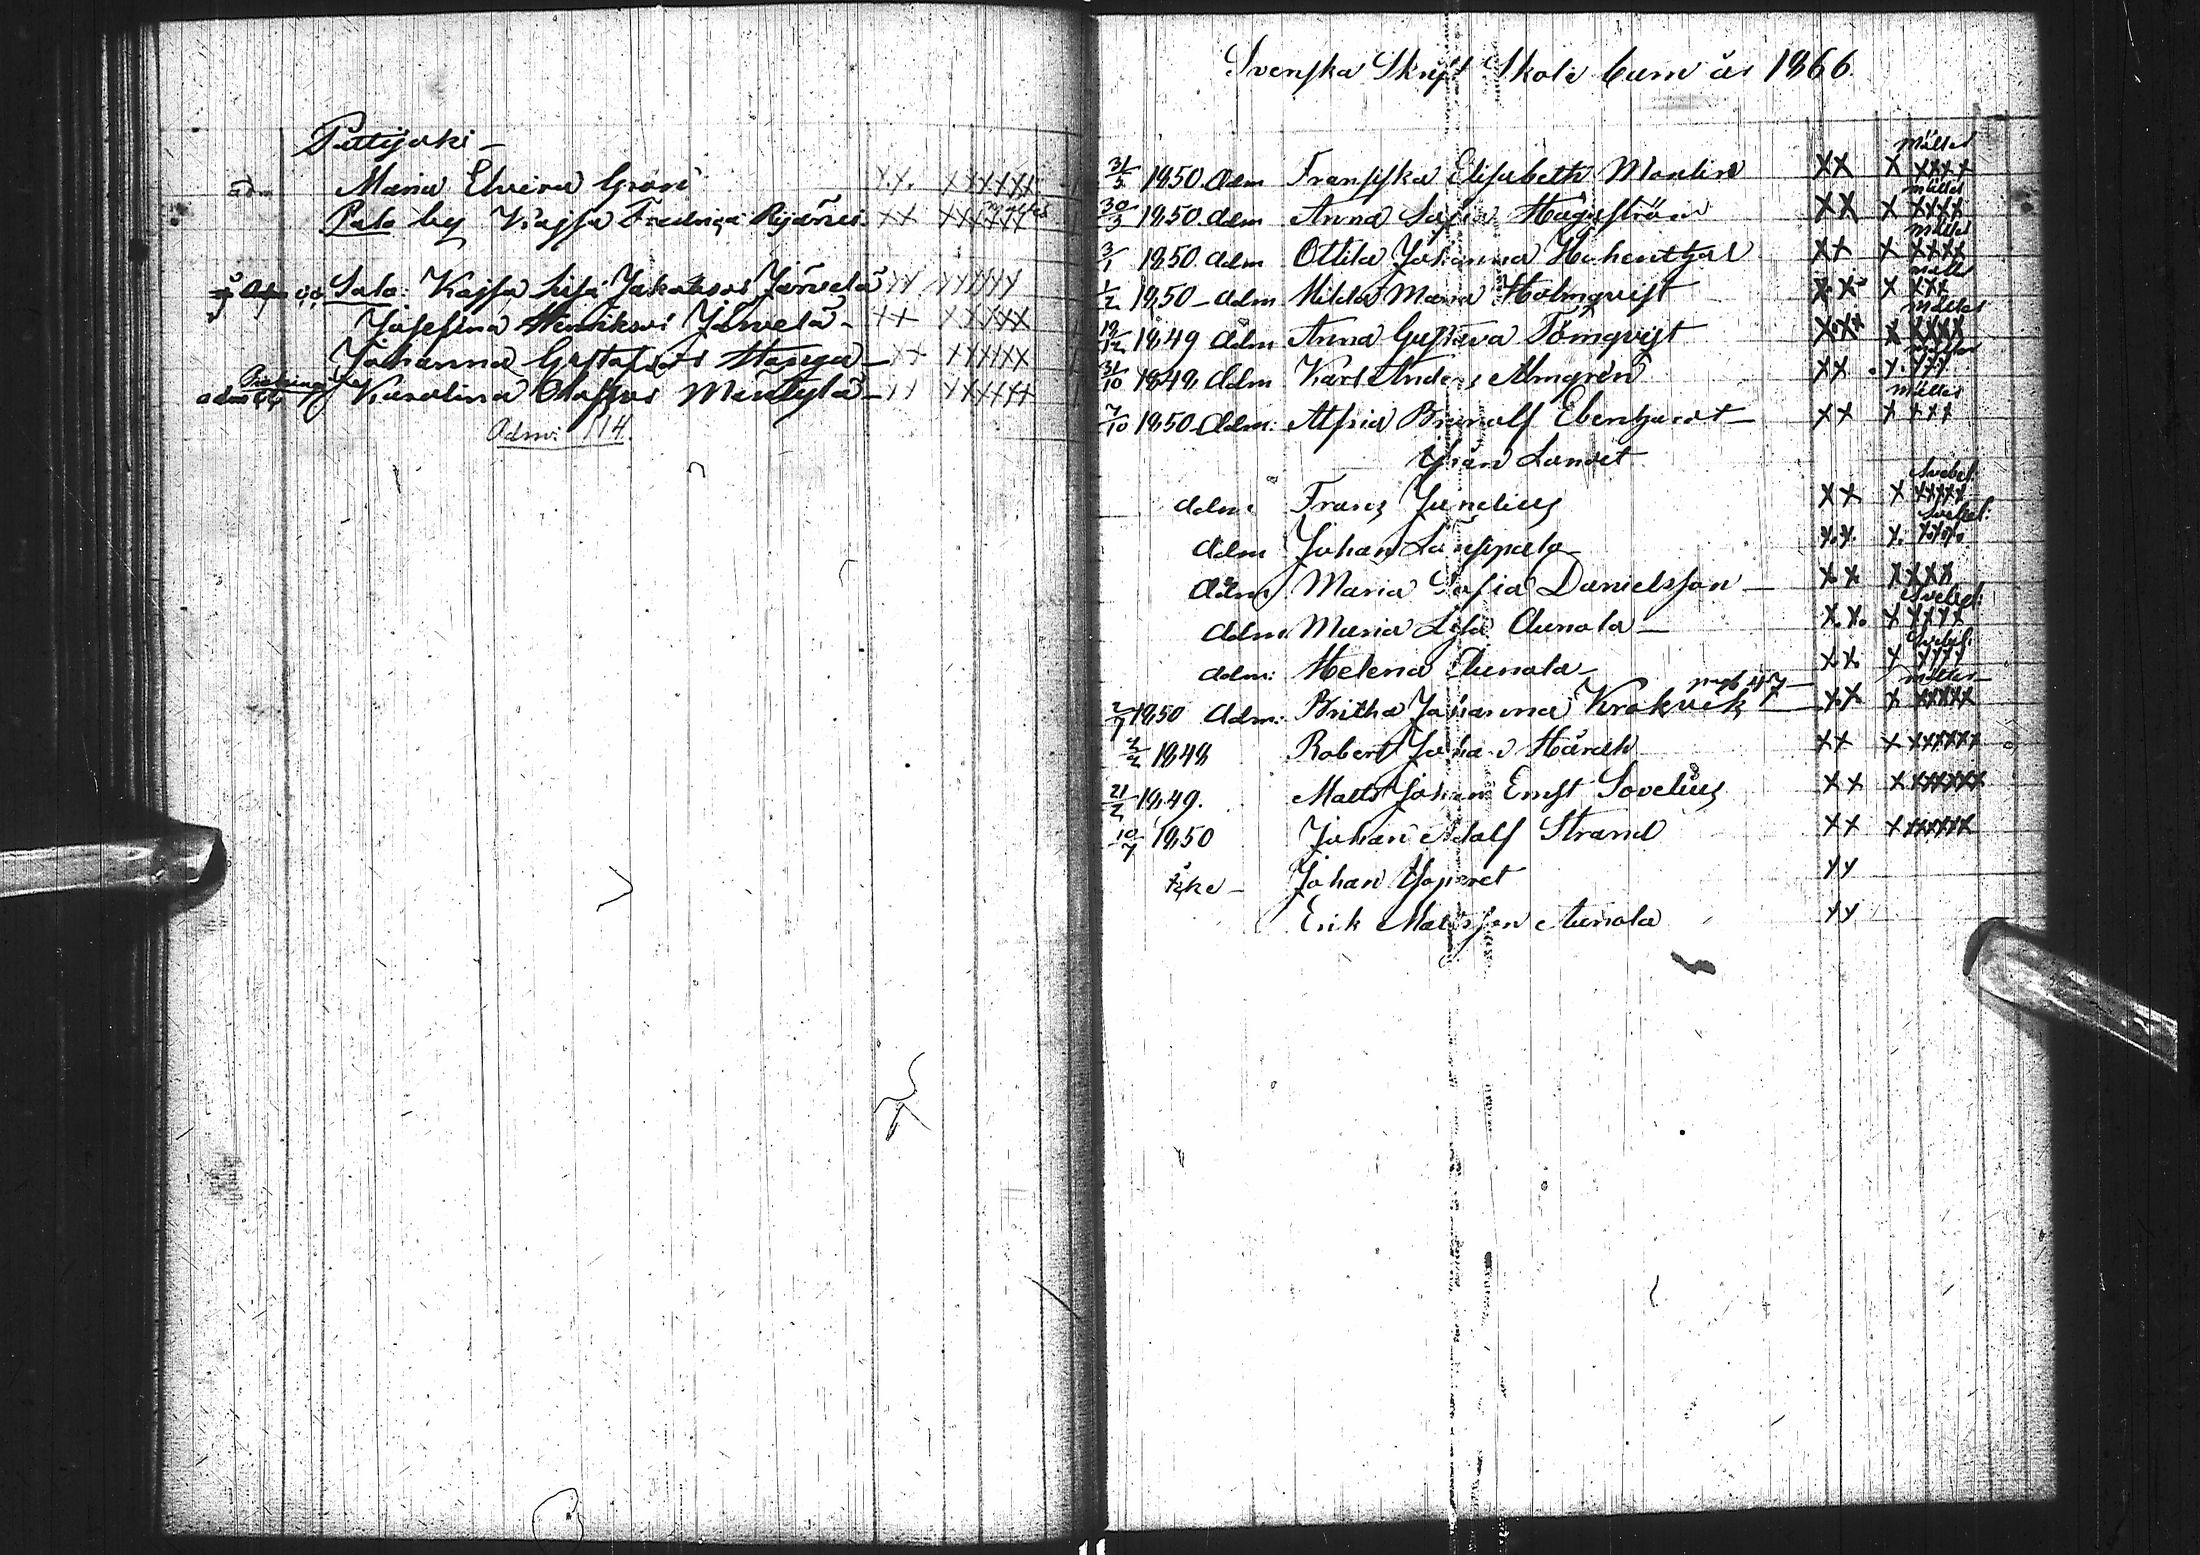 Pattijoki -
adm Maria Elvira Grön xx. xxxxxx
Palo by Kajsa Fredrika xx xxxxxx
Salo: Kajsa Lisa Jakobsdr Järvelä xx xxxxx
Josefina Henriksdr Järvelä - xx xxxxx
Johanna Gustafsdr - xx xxxxxx
Karolina Olofsdr Mäntylä - xx xxxxxx
Adm: 114.
Svenska Skrift Skole barn år 1866.
Mälles
31/3 1850. Adm Fransiska Elisabeth Montin xx x xxxx
mälles
30/3 1850. Adm Anna Sofia Häggström xx x xxxx
mälles
3/1 1850. Adm Ottila Johanna Hohenthal xx x xxxx
1/2 1850 - Adm Hilda Maria Holmqvist xx x xxx
Mälles
19/12 1849 Adm Anna Gustava Törnqvist xxx x xxxx
31/10 1848 Adm Karl Anders Almgren xx x xxx
Mälles
7/10 1850 Adm: Brunolf Eberhardt - xx x xxx
från Landet
Svebel:
adm: Franz Junelius xx x xxxxx
Svebel:
Adm Johan xx. x. xxxx
Adm Maria Sofia Danielsson - xx xxxx
Svebel:
Adm: Maria Lisa Aunola - x.x. x xxxx
Svebel:
adm: Helena Aunola - xx. x xxxx
mälles
2/7 1850 Adm: Britha Johanna Krokvick xx x xxxxx
2/2 1848 Robert Johan Hårdh xx x xxxxxx
21/2 1849. Matts Johan Ernst Sovelius xx x xxxxxx
10/7 1850 Johan Adolf Strand xx x xxxxxx
icke - Johan xx
Erik Matsson Aunola xx